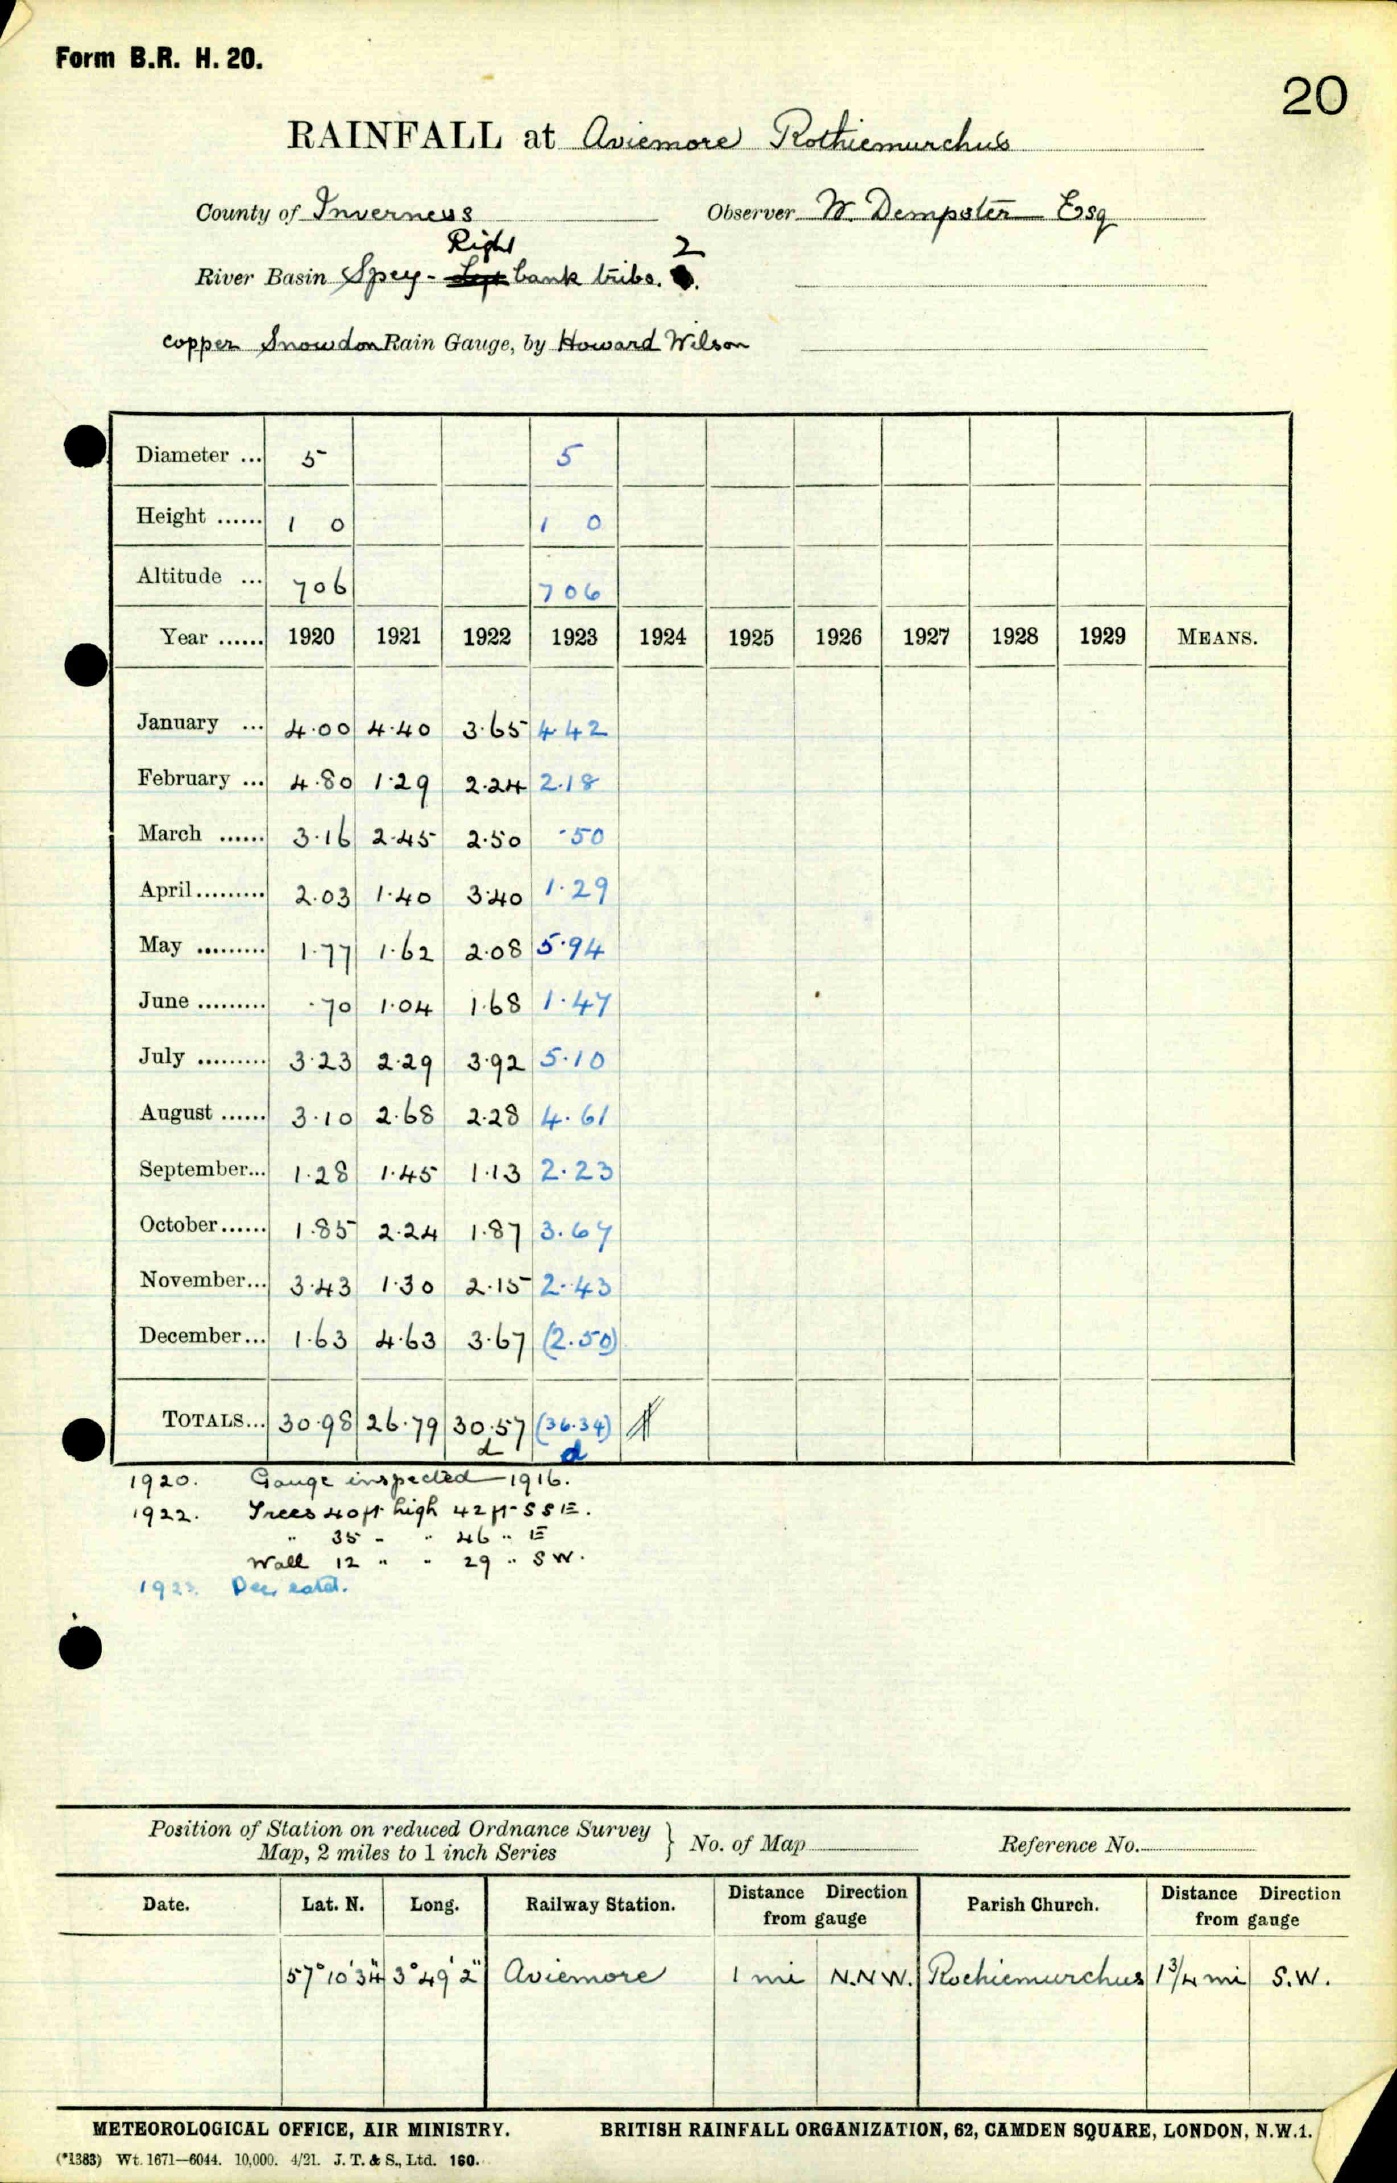 Form B.R. H. 20.
20
RAINFALL at Aviemore Rothiemurchus
County of Inverness Observer W. Dempster Esq
Right 2
River Basin Spey - Left bank tribs.
copper Snowdon Rain Gauge, by Howard Wilson
Diameter ... 5 5
Height ...... 1 0 1 0
Altitude ... 706 706
Year ...... 1920 1921 1922 1923 1924 1925 1926 1927 1928 1929 MEANS.
January ... 4.00 4.40 3.65 4.42
February ... 4.80 1.29 2.24 2.18
March ...... 3.16 2.45 2.50 .50
April......... 2.03 1.40 3.40 1.29
May ......... 1.77 1.62 2.08 5.94
June ......... .70 1.04 1.68 1.47
July ......... 3.23 2.29 3.92 5.10
August ...... 3.10 2.68 2.28 4.61
September... 1.28 1.45 1.13 2.23
October...... 1.85 2.24 1.87 3.67
November... 3.43 1.30 2.15 2.43
December... 1.63 4.63 3.67 (2.50)
TOTALS... 30.98 26.79 30.57 (36.34)
d d
1920. Gauge inspected 1916.
1922. Trees 40ft high 42ft SSE.
" 35 " " 46 " E
Wall 12 " " 29 " SW.
1923. Dec. estd.
Position of Station on reduced Ordnance Survey
Map, 2 miles to 1 inch Series } No. of Map Reference No.
Date. Lat. N. Long. Railway Station. Distance Direction from gauge Parish Church. Distance Direction from gauge
57°10'34" 3°49'2" Aviemore 1 mi N.N.W. Rochiemurchus 1 3/4 mi S.W.
METEOROLOGICAL OFFICE, AIR MINISTRY. BRITISH RAINFALL ORGANIZATION, 62, CAMDEN SQUARE, LONDON, N.W.1.
(*1383) Wt. 1671—6044. 10,000. 4/21. J. T. & S., Ltd. 160.